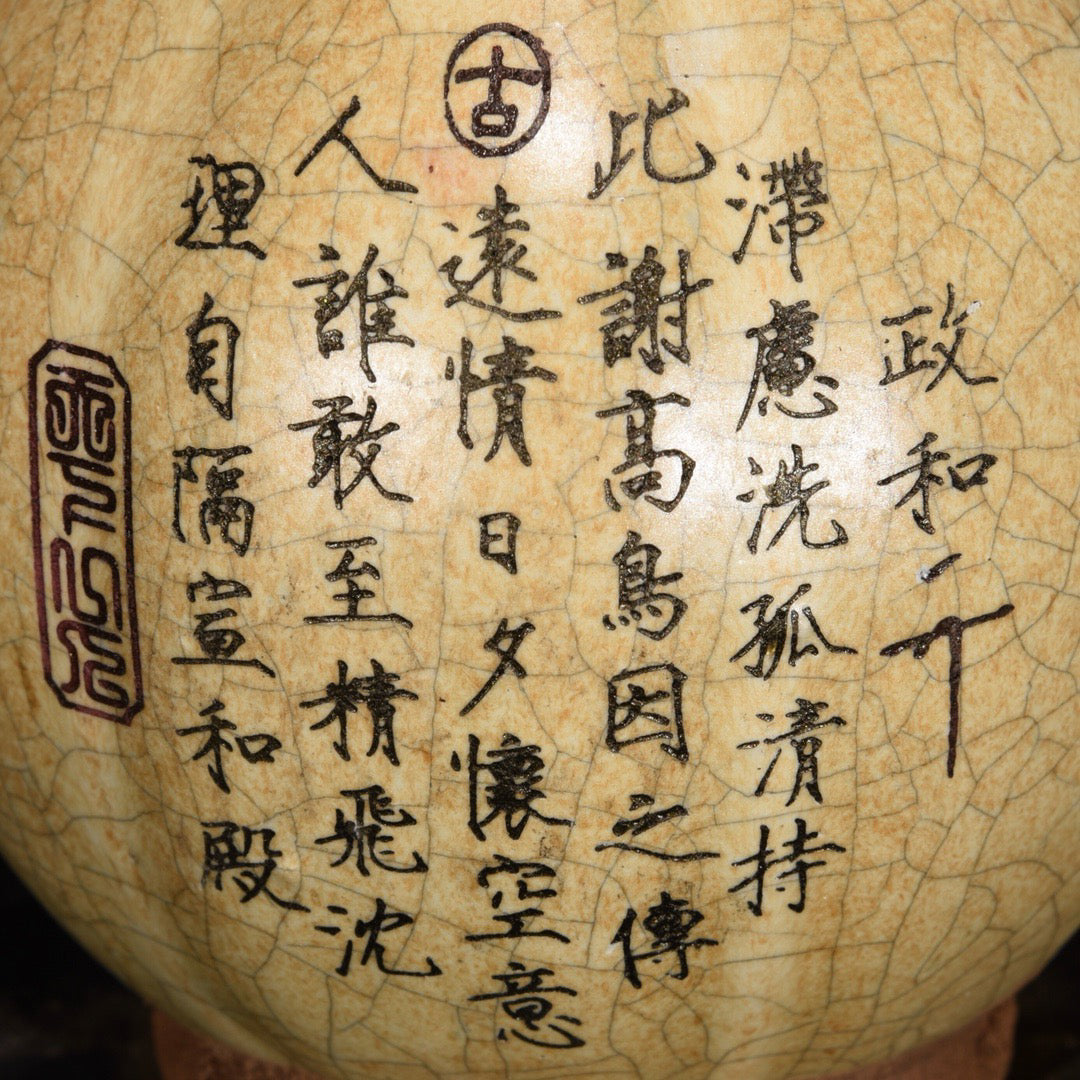 政和
滯慮洗孤清持
此謝高鳥因之傳
古
遠情日夕懷空意
人誰敢至精飛沈
理自隔宣和殿